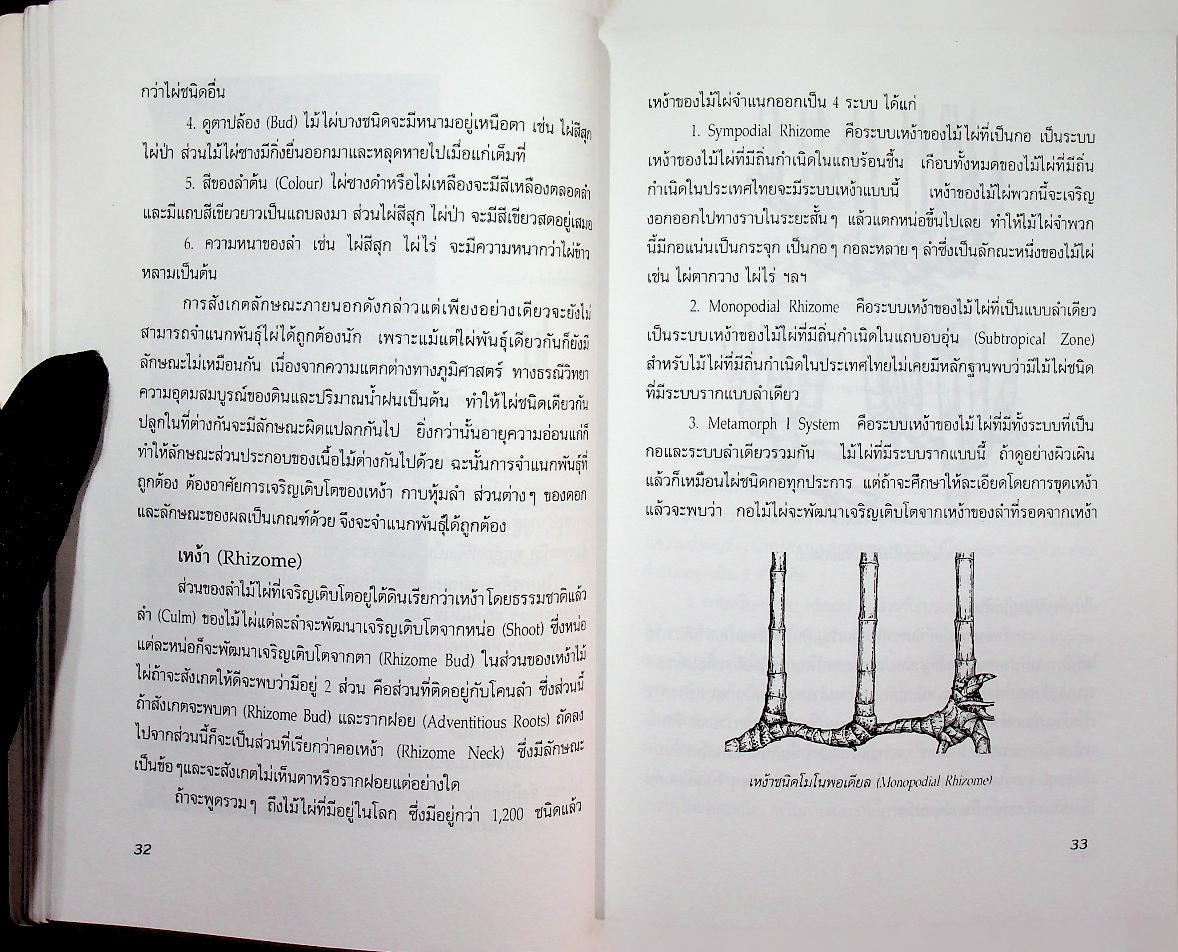 กว่าไผ่ชนิดอื่น
4. ดูตาปล้อง (Bud) ไม้ไผ่บางชนิดจะมีหนามอยู่เหนือตา เช่น ไผ่สีสุก
ไผ่ป่า ส่วนไม้ไผ่ซางมีกิ่งยื่นออกมาและหลุดหายไปเมื่อแก่เต็มที่
5. สีของลำต้น (Colour) ไผ่ซางดำหรือไผ่เหลืองจะมีสีเหลืองตลอดลำ
และมีแถบสีเขียวยาวเป็นแถบลงมา ส่วนไผ่สีสุก ไผ่ป่า จะมีสีเขียวสดอยู่เสมอ
6. ความหนาของลำ เช่น ไผ่สีสุก ไผ่ไร่ จะมีความหนากว่าไผ่ข้าว
หลามเป็นต้น
การสังเกตลักษณะภายนอกดังกล่าวแต่เพียงอย่างเดียวจะยังไม่
สามารถจำแนกพันธุ์ไผ่ได้ถูกต้องนัก เพราะแม้แต่ไผ่พันธุ์เดียวกันก็ยังมี
ลักษณะไม่เหมือนกัน เนื่องจากความแตกต่างทางภูมิศาสตร์ ทางธรณีวิทยา
ความอุดมสมบูรณ์ของดินและปริมาณน้ำฝนเป็นต้น ทำให้ไผ่ชนิดเดียวกัน
ปลูกในที่ต่างกันจะมีลักษณะผิดแปลกกันไป ยิ่งกว่านั้นอายุความอ่อนแก่ก็
ทำให้ลักษณะส่วนประกอบของเนื้อไม้ต่างกันไปด้วย ฉะนั้นการจำแนกพันธุ์ที่
ถูกต้อง ต้องอาศัยการเจริญเติบโตของเหง้า กาบหุ้มลำ ส่วนต่างๆ ของดอก
และลักษณะของผลเป็นเกณฑ์ด้วย จึงจะจำแนกพันธุ์ได้ถูกต้อง
เหง้า (Rhizome)
ส่วนของลำไม้ไผ่ที่เจริญเติบโตอยู่ใต้ดินเรียกว่าเหง้า โดยธรรมชาติแล้ว
ลำ (Culm) ของไม้ไผ่แต่ละลำจะพัฒนาเจริญเติบโตจากหน่อ (Shoot) ซึ่งหน่อ
แต่ละหน่อก็จะพัฒนาเจริญเติบโตจากตา (Rhizome Bud) ในส่วนของเหง้าไม้
ไผ่ถ้าจะสังเกตให้ดีจะพบว่ามีอยู่ 2 ส่วน คือส่วนที่ติดอยู่กับโคนลำ ซึ่งส่วนนี้
ถ้าสังเกตจะพบตา (Rhizome Bud) และรากฝอย (Adventitious Roots) ถัดลง
ไปจากส่วนนี้ก็จะเป็นส่วนที่เรียกว่าคอเหง้า (Rhizome Neck) ซึ่งมีลักษณะ
เป็นข้อๆและจะสังเกตไม่เห็นตาหรือรากฝอยแต่อย่างใด
ถ้าจะพูดรวมๆ ถึงไม้ไผ่ที่มีอยู่ในโลก ซึ่งมีอยู่กว่า 1,200 ชนิดแล้ว
32
เหง้าของไม้ไผ่จำแนกออกเป็น 4 ระบบ ได้แก่
1. Sympodial Rhizome คือระบบเหง้าของไม้ไผ่ที่เป็นกอ เป็นระบบ
เหง้าของไม้ไผ่ที่มีถิ่นกำเนิดในแถบร้อนชื้น เกือบทั้งหมดของไม้ไผ่ที่มีถิ่น
กำเนิดในประเทศไทยจะมีระบบเหง้าแบบนี้ เหง้าของไม้ไผ่พวกนี้จะเจริญ
งอกออกไปทางราบในระยะสั้นๆ แล้วแตกหน่อขึ้นไปเลย ทำให้ไม้ไผ่จำพวก
นี้มีกอแน่นเป็นกระจุก เป็นกอๆ กอละหลายๆ ลำซึ่งเป็นลักษณะหนึ่งของไม้ไผ่
เช่น ไผ่ตากวาง ไผ่ไร่ ฯลฯ
2. Monopodial Rhizome คือระบบเหง้าของไม้ไผ่ที่เป็นแบบลำเดียว
เป็นระบบเหง้าของไม้ไผ่ที่มีถิ่นกำเนิดในแถบอบอุ่น (Subtropical Zone)
สำหรับไม้ไผ่ที่มีถิ่นกำเนิดในประเทศไทยไม่เคยมีหลักฐานพบว่ามีไม้ไผ่ชนิด
ที่มีระบบรากแบบลำเดียว
3. Metamorph I System คือระบบเหง้าของไม้ไผ่ที่มีทั้งระบบที่เป็น
กอและระบบลำเดียวรวมกัน ไม้ไผ่ที่มีระบบรากแบบนี้ ถ้าดูอย่างผิวเผิน
แล้วก็เหมือนไผ่ชนิดกอทุกประการ แต่ถ้าจะศึกษาให้ละเอียดโดยการขุดเหง้า
แล้วจะพบว่า กอไม้ไผ่จะพัฒนาเจริญเติบโตจากเหง้าของลำที่รอดจากเหง้า
เหง้าชนิดโมโนพอเดียล (Monopodial Rhizome)
33